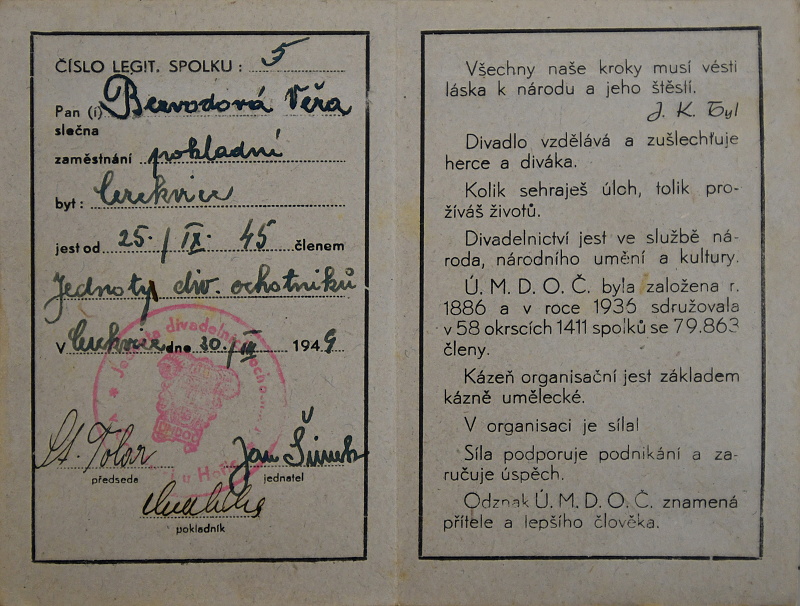 ČÍSLO LEGIT. SPOLKU: 5
Pan (í) Bezvodová Věra
slečna
zaměstnání pokladní
byt: Cerekvice
jest od 25./IX. 45 členem
Jednoty div. ochotníků
V Cerekvici dne 20./III 1949
St. Tolar
předseda
Jan Šimek
jednatel
pokladník
Všechny naše kroky musí vésti
láska k národu a jeho štěstí.
J. K. Tyl
Divadlo vzdělává a zušlechťuje
herce a diváka.
Kolik sehraješ úloh, tolik pro-
žíváš životů.
Divadelnictví jest ve službě ná-
roda, národního umění a kultury.
Ú. M. D. O. Č. byla založena r.
1886 a v roce 1936 sdružovala
v 58 okrscích 1411 spolků se 79.863
členy.
Kázeň organisační jest základem
kázně umělecké.
V organisaci je síla!
Síla podporuje podnikání a za-
ručuje úspěch.
Odznak Ú. M. D. O. Č. znamená
přítele a lepšího člověka.